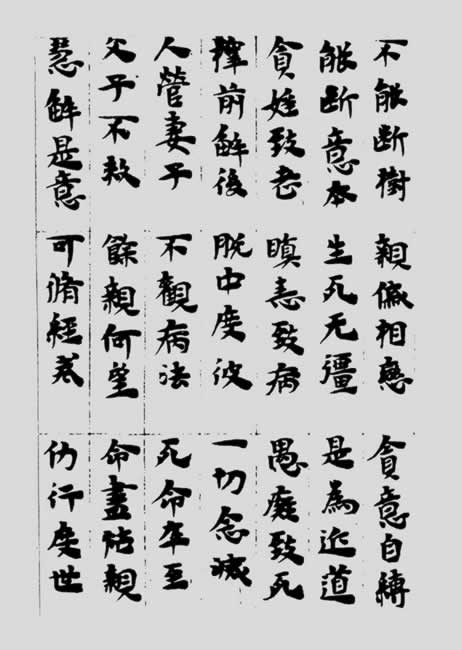 不能斷樹 親相戀 貪意自縛
能斷意本 生死无彊 是為近道
貪婬致老 瞋恚致病 愚癡致死
釋前解後 脫中度彼 一切念滅
人營妻子 不觀病法 死命卒至
父子不救 餘親何望 命盡怙親
慧解是意 可脩經戒 仂行度世